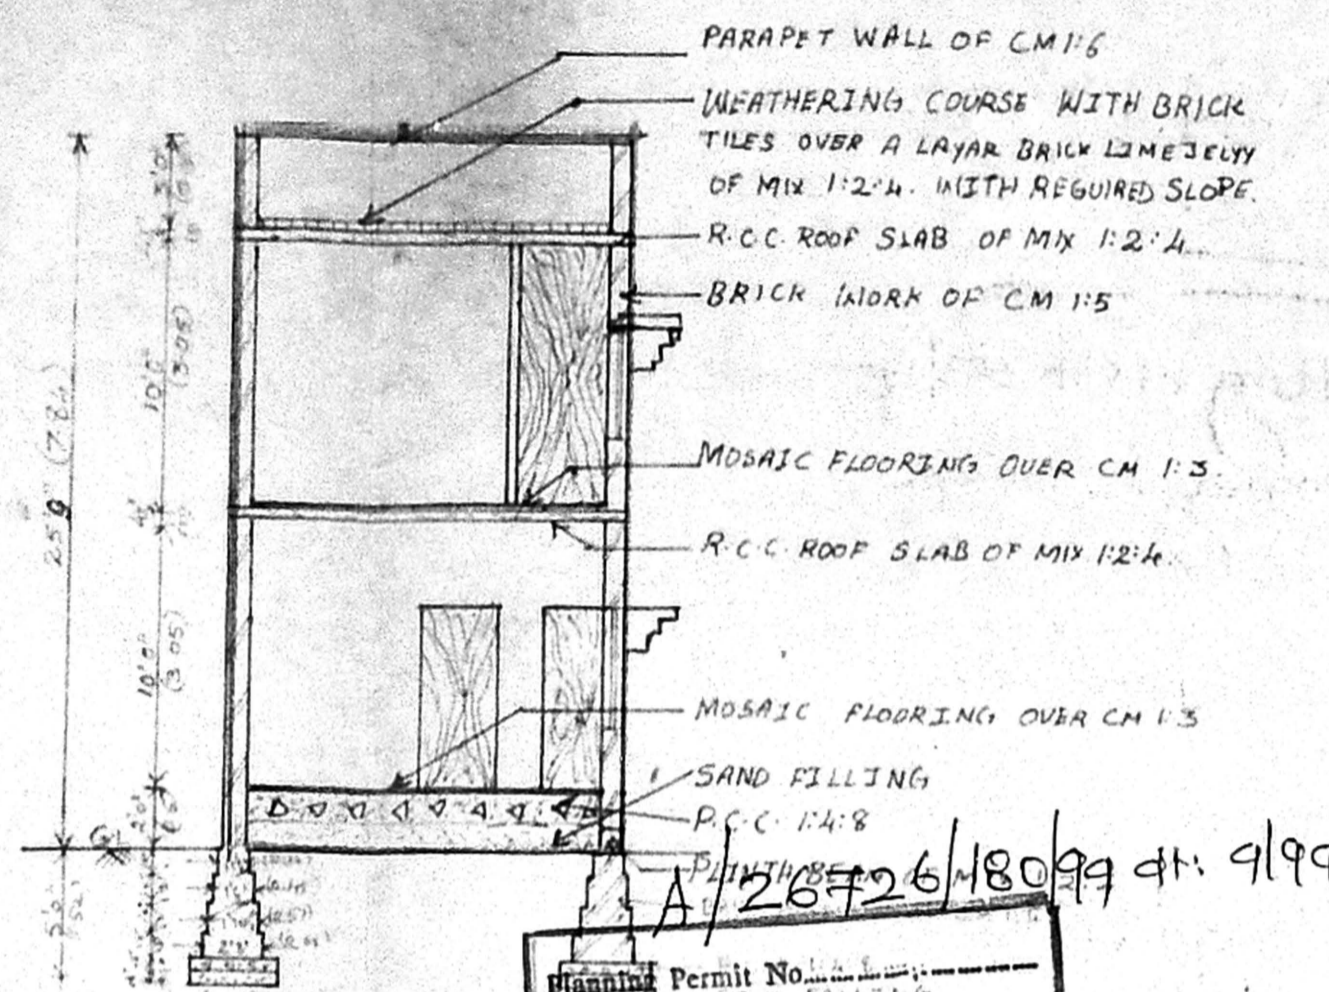 PARAPET WALL OF CM 1:6
WEATHERING COURSE WITH BRICK
TILES OVER A LAYAR BRICK LIME JELYY
OF MIX 1:2:4. WITH REGUIRED SLOPE.
R.C.C. ROOF SLAB OF MIX 1:2:4.
BRICK WORK OF CM 1:5
MOSAIC FLOORING OVER CM 1:3.
R.C.C. ROOF SLAB OF MIX 1:2:4.
MOSAIC FLOORING OVER CM 1:3
SAND FILLING
P.C.C. 1:4:8
PLINTH BEAM
A/26726/180/99 dt: 9/99
Planning Permit No.
3'0"
10'0"
(3.05)
25'9" (7.84)
10'0"
(3.05)
2'0"